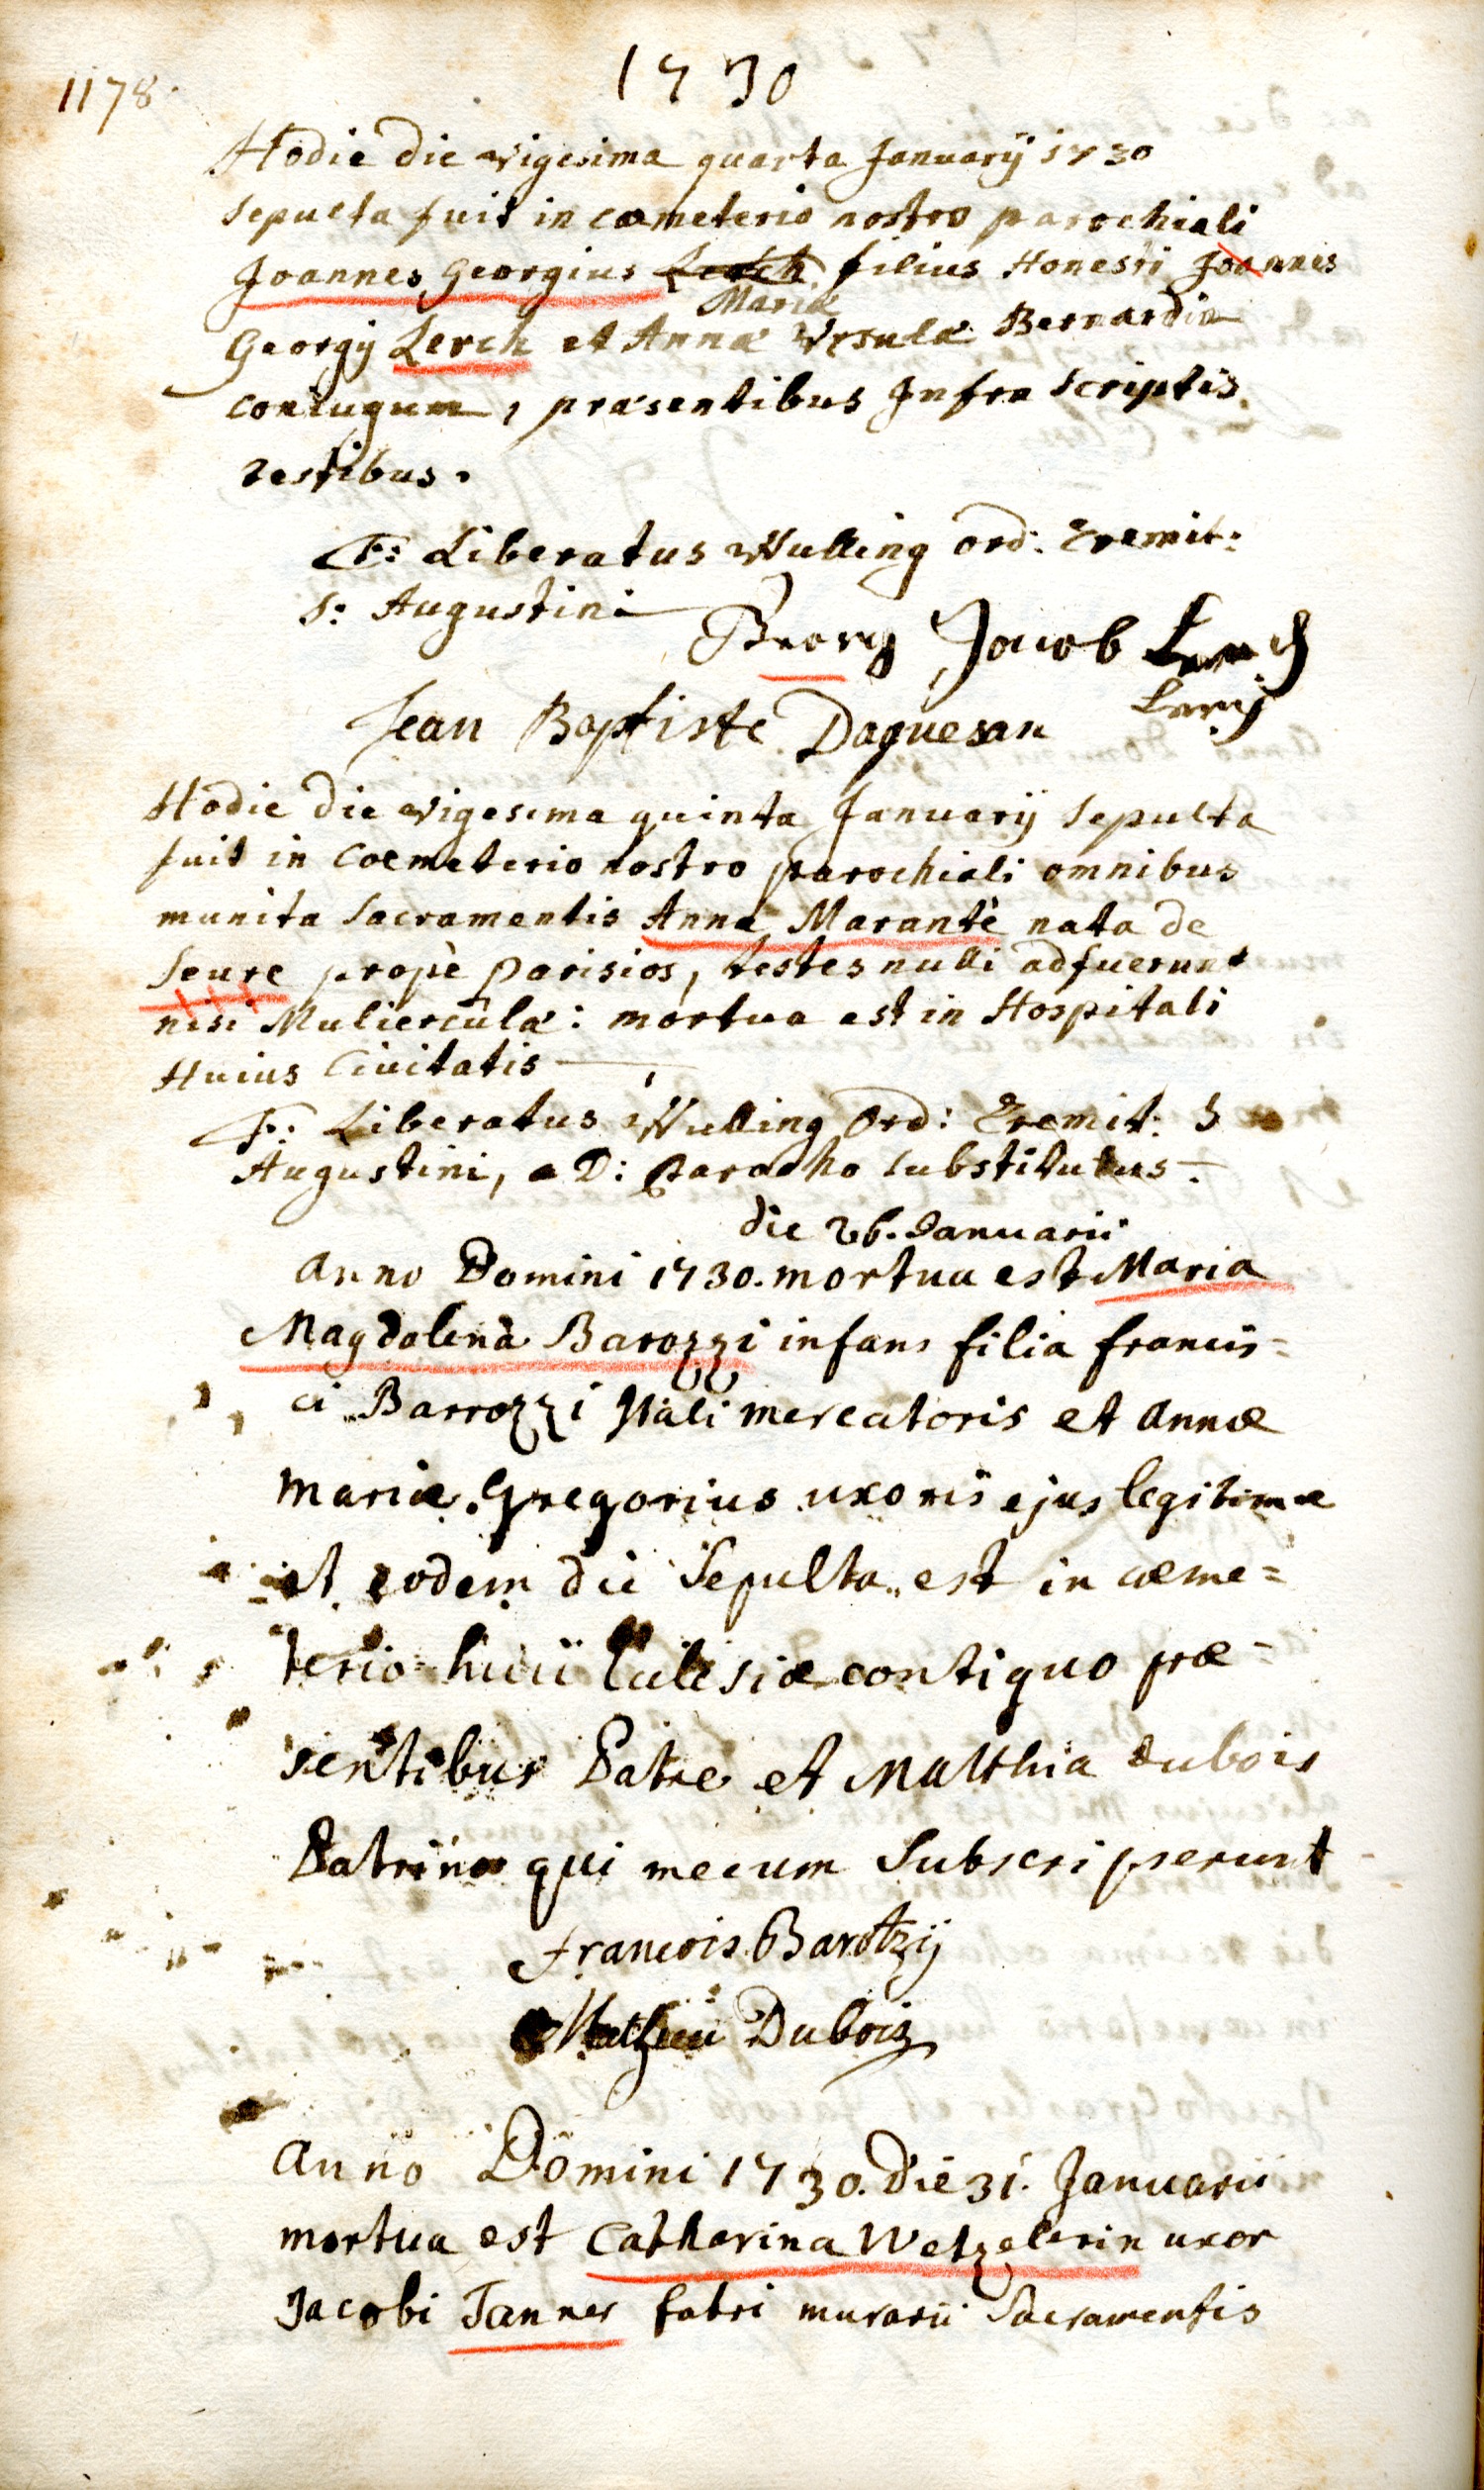 1178.
1730
Hodie die vigesima quarta Januarij 1730
sepulta fuit in cœmeterio nostro parochiali
Joannes Georgius Lerch filius Honesti Joannis
Mariæ
Georgij Lerch et Annæ Vrsulæ Bernardin
coniugum, præsentibus Infra scriptis
testibus.
F: Liberatus Wulling ord: Eremit:
S: Augustini
Georg Jacob Lerch
Jean Baptiste Daguesan
Hodie die vigesima quinta Januarij sepulta
fuit in Coemeterio nostro parochiali omnibus
munita Sacramentis Anna Marantè nata de
Seure propè Parisios, testes nulli adfuerunt
nisi Mulierculæ: mortua est in Hospitali
Huius Ciuitatis
F: Liberatus Wulling Ord: Eremit: S
Augustini, a D: Parocho substitutus.
die 26. Januarii
Anno Domini 1730. mortua est Maria
Magdalena Barozzi infans filia francis=
ci Barrozzi Itali mercatoris et Annæ
Mariæ Gregorius uxoris ejus legitimæ
et eodem die Sepulta est in cœme=
terio huic Ecclesiæ contiguo præ=
sentibus Patre et Matthia dubois
Patrino qui mecum Subscripserunt
Francois Barotzij
Dubois
Anno Domini 1730. die 31. Januarii
mortua est Catharina Wetzelerin uxor
Jacobi Tanner fabri murarii Sacramentis